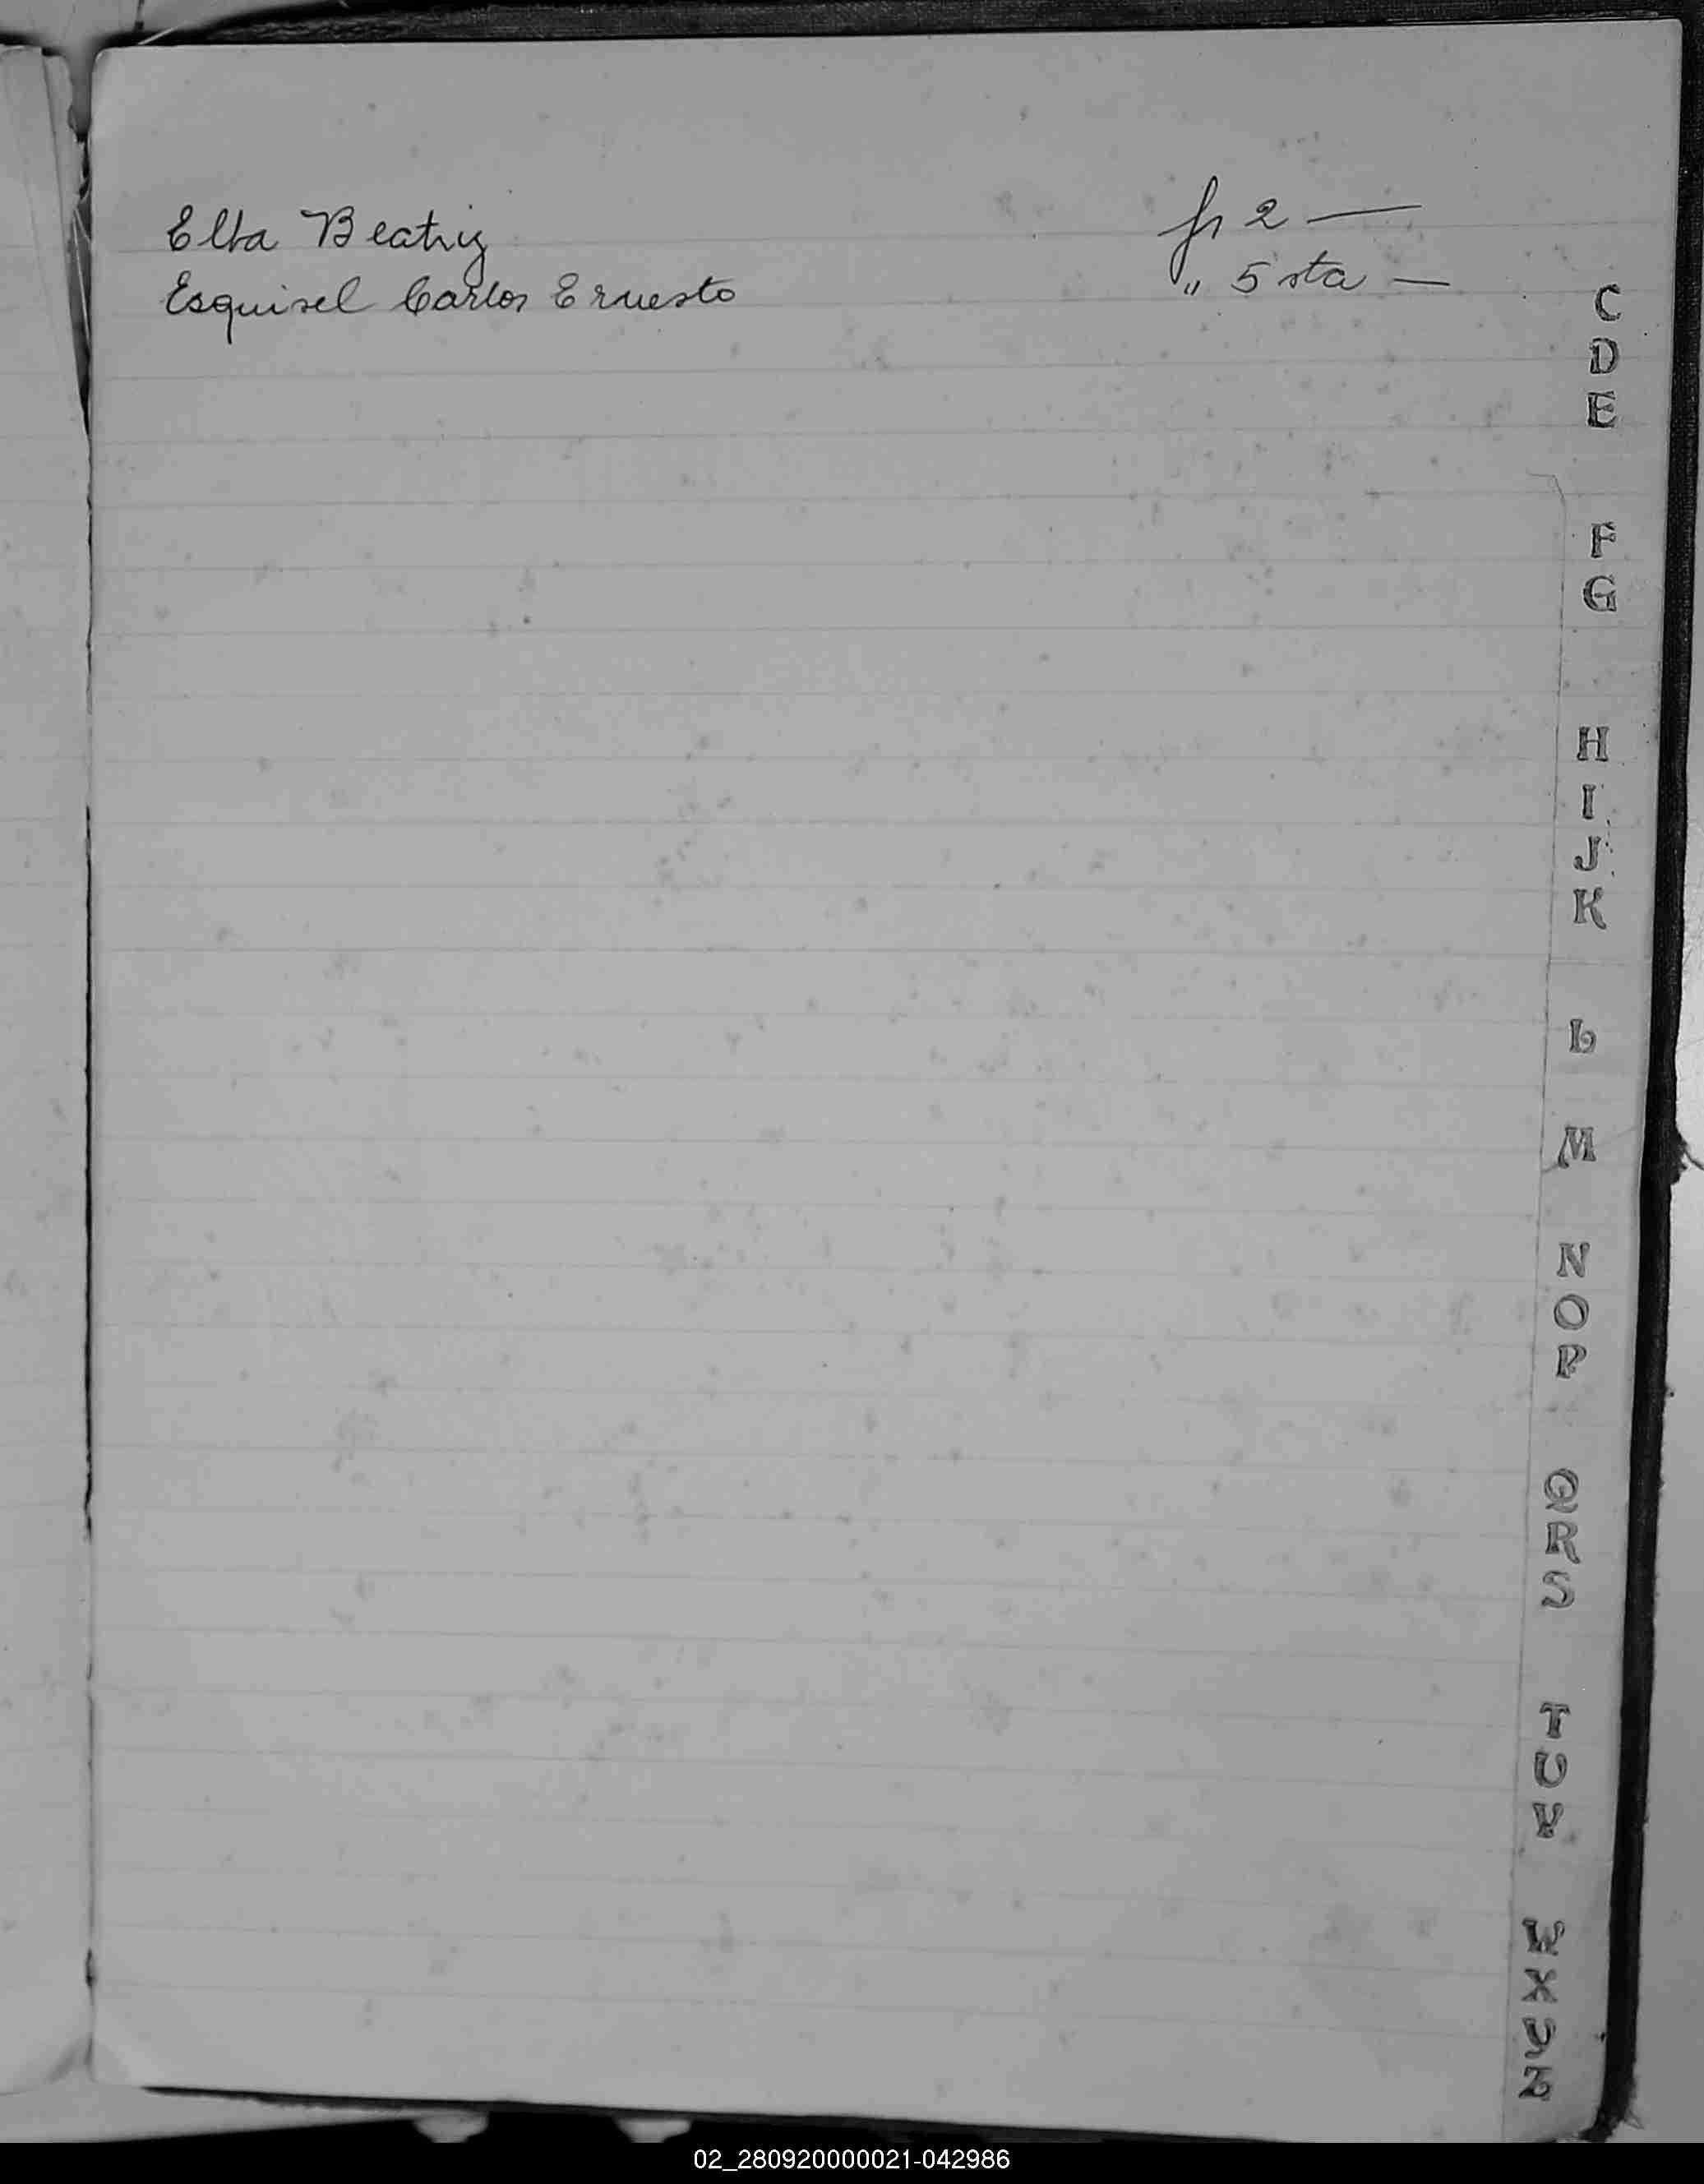 Elba Beatriz fs 2 —
Esquisel Carlos Ernesto " 5 vta —
C
D
E
F
G
H
I
J
K
L
M
N
O
P
Q
R
S
T
U
V
W
X
Y
Z
02_280920000021-042986